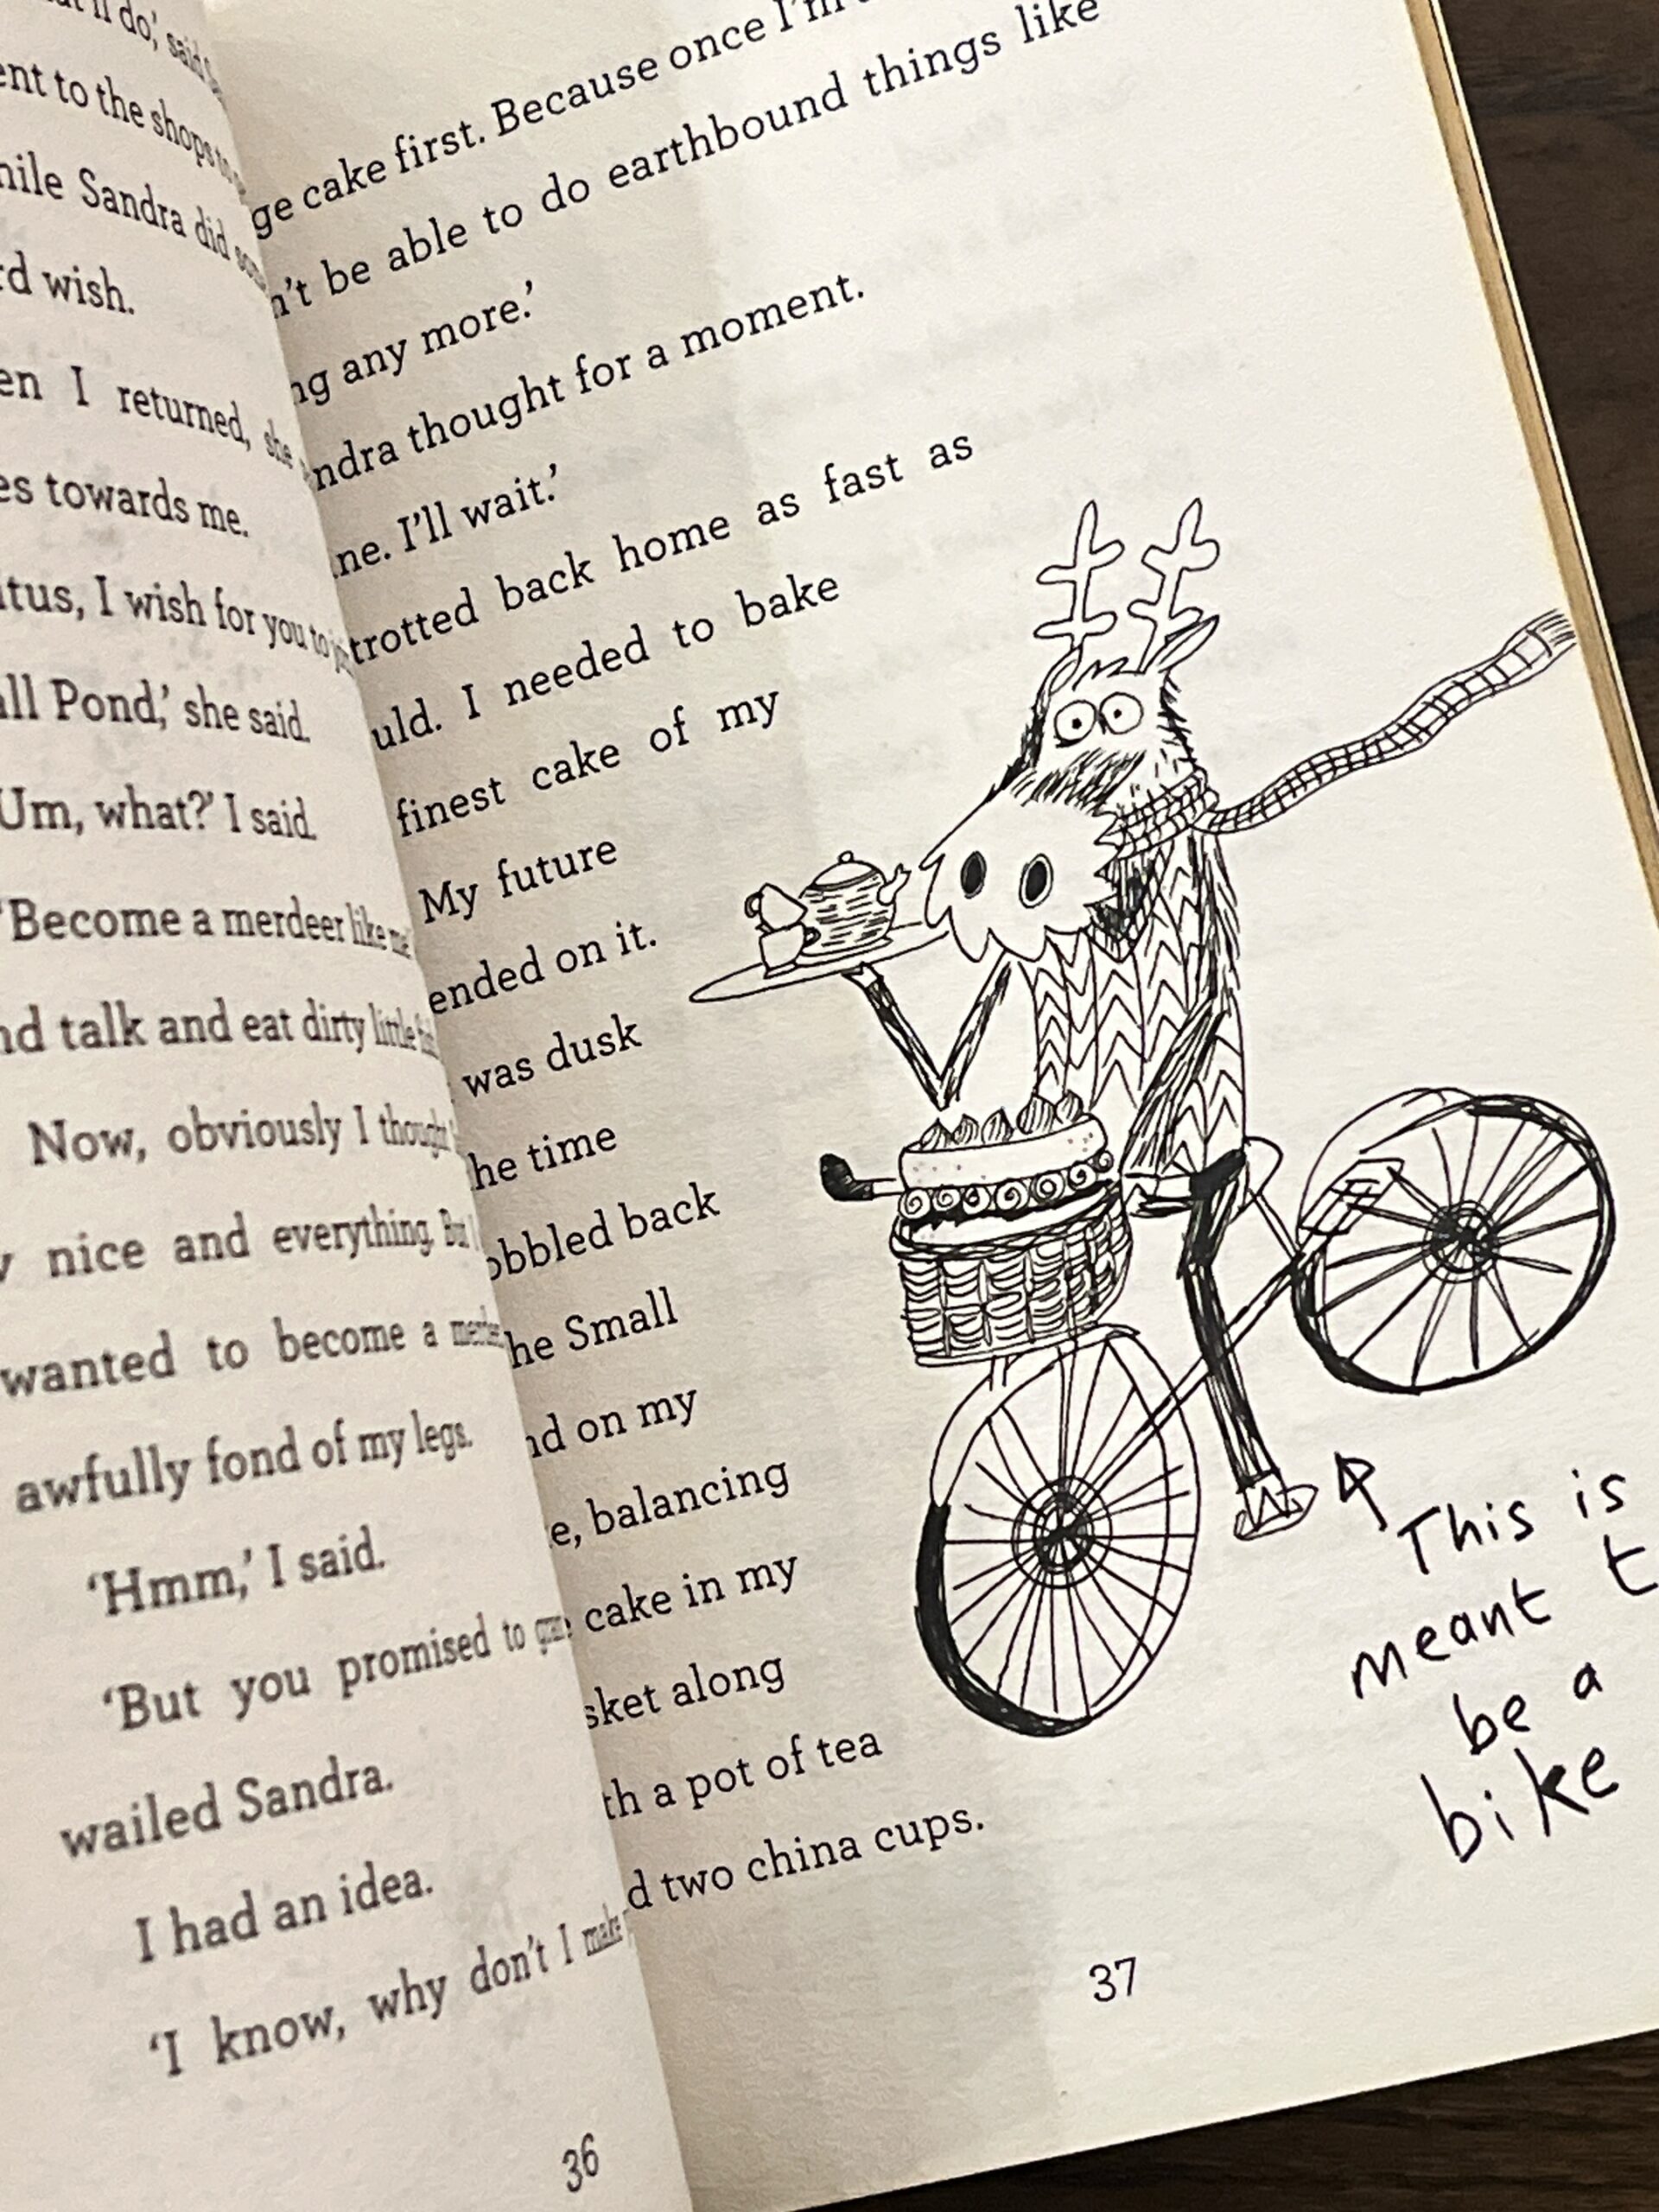 do,' said
ent to the shops
hile Sandra did
rd wish.
en I returned, she
es towards me.
itus, I wish for you to
all Pond,' she said.
Um, what?' I said.
'Become a merdeer like me
nd talk and eat dirty little
Now, obviously I thought
y nice and everything. But I
wanted to become a
awfully fond of my legs.
'Hmm,' I said.
'But you promised to
wailed Sandra.
I had an idea.
'I know, why don't I make
36
ge cake first. Because once I'm
n't be able to do earthbound things like
ng any more.'
ndra thought for a moment.
ne. I'll wait.'
trotted back home as fast as
uld. I needed to bake
finest cake of my
My future
ended on it.
was dusk
he time
obbled back
he Small
nd on my
e, balancing
cake in my
sket along
th a pot of tea
d two china cups.
This is
meant t
be a
bike
37